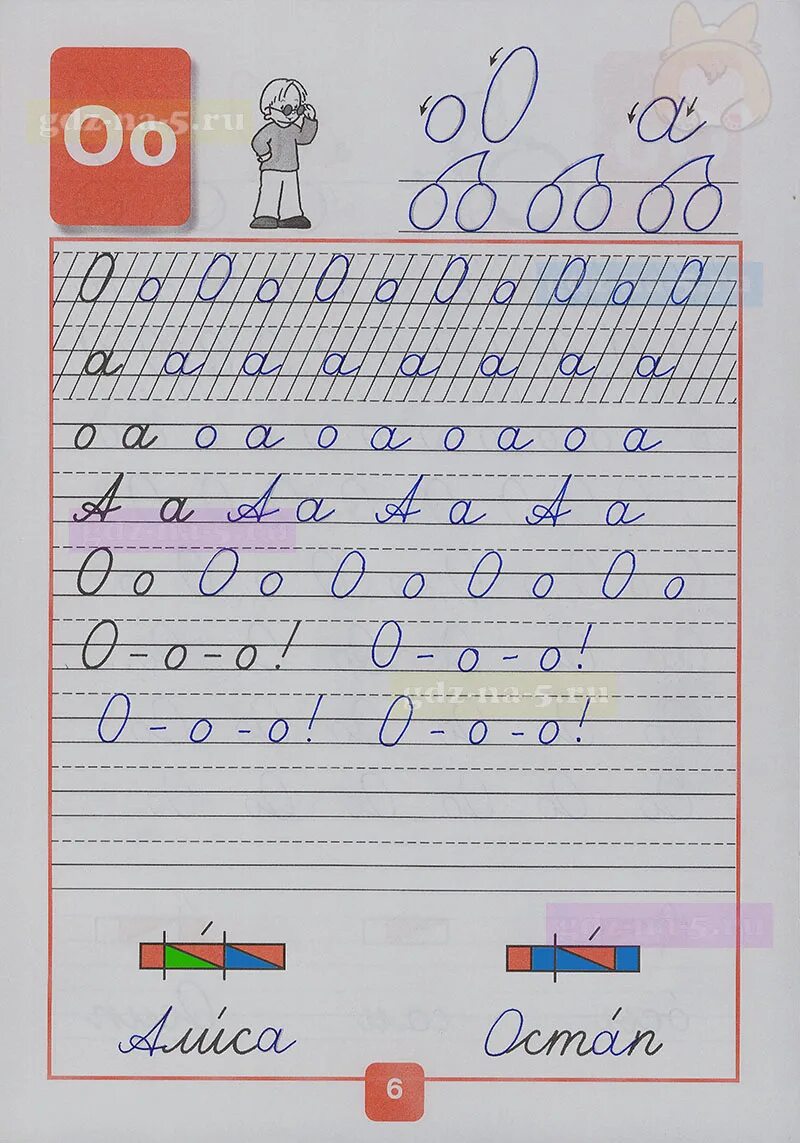 gdz-na-5.ru
Оо
о О а
О о О о О о О о О о О
а а а а а а а а
о а о а о а о а о а
А а А а А а А а
gdz-na-5.ru
О о О о О о О о О о
О - о - о! О - о - о!
gdz-na-5.ru
О - о - о! О - о - о!
gdz-na-5.ru
Али́са Оста́п
6